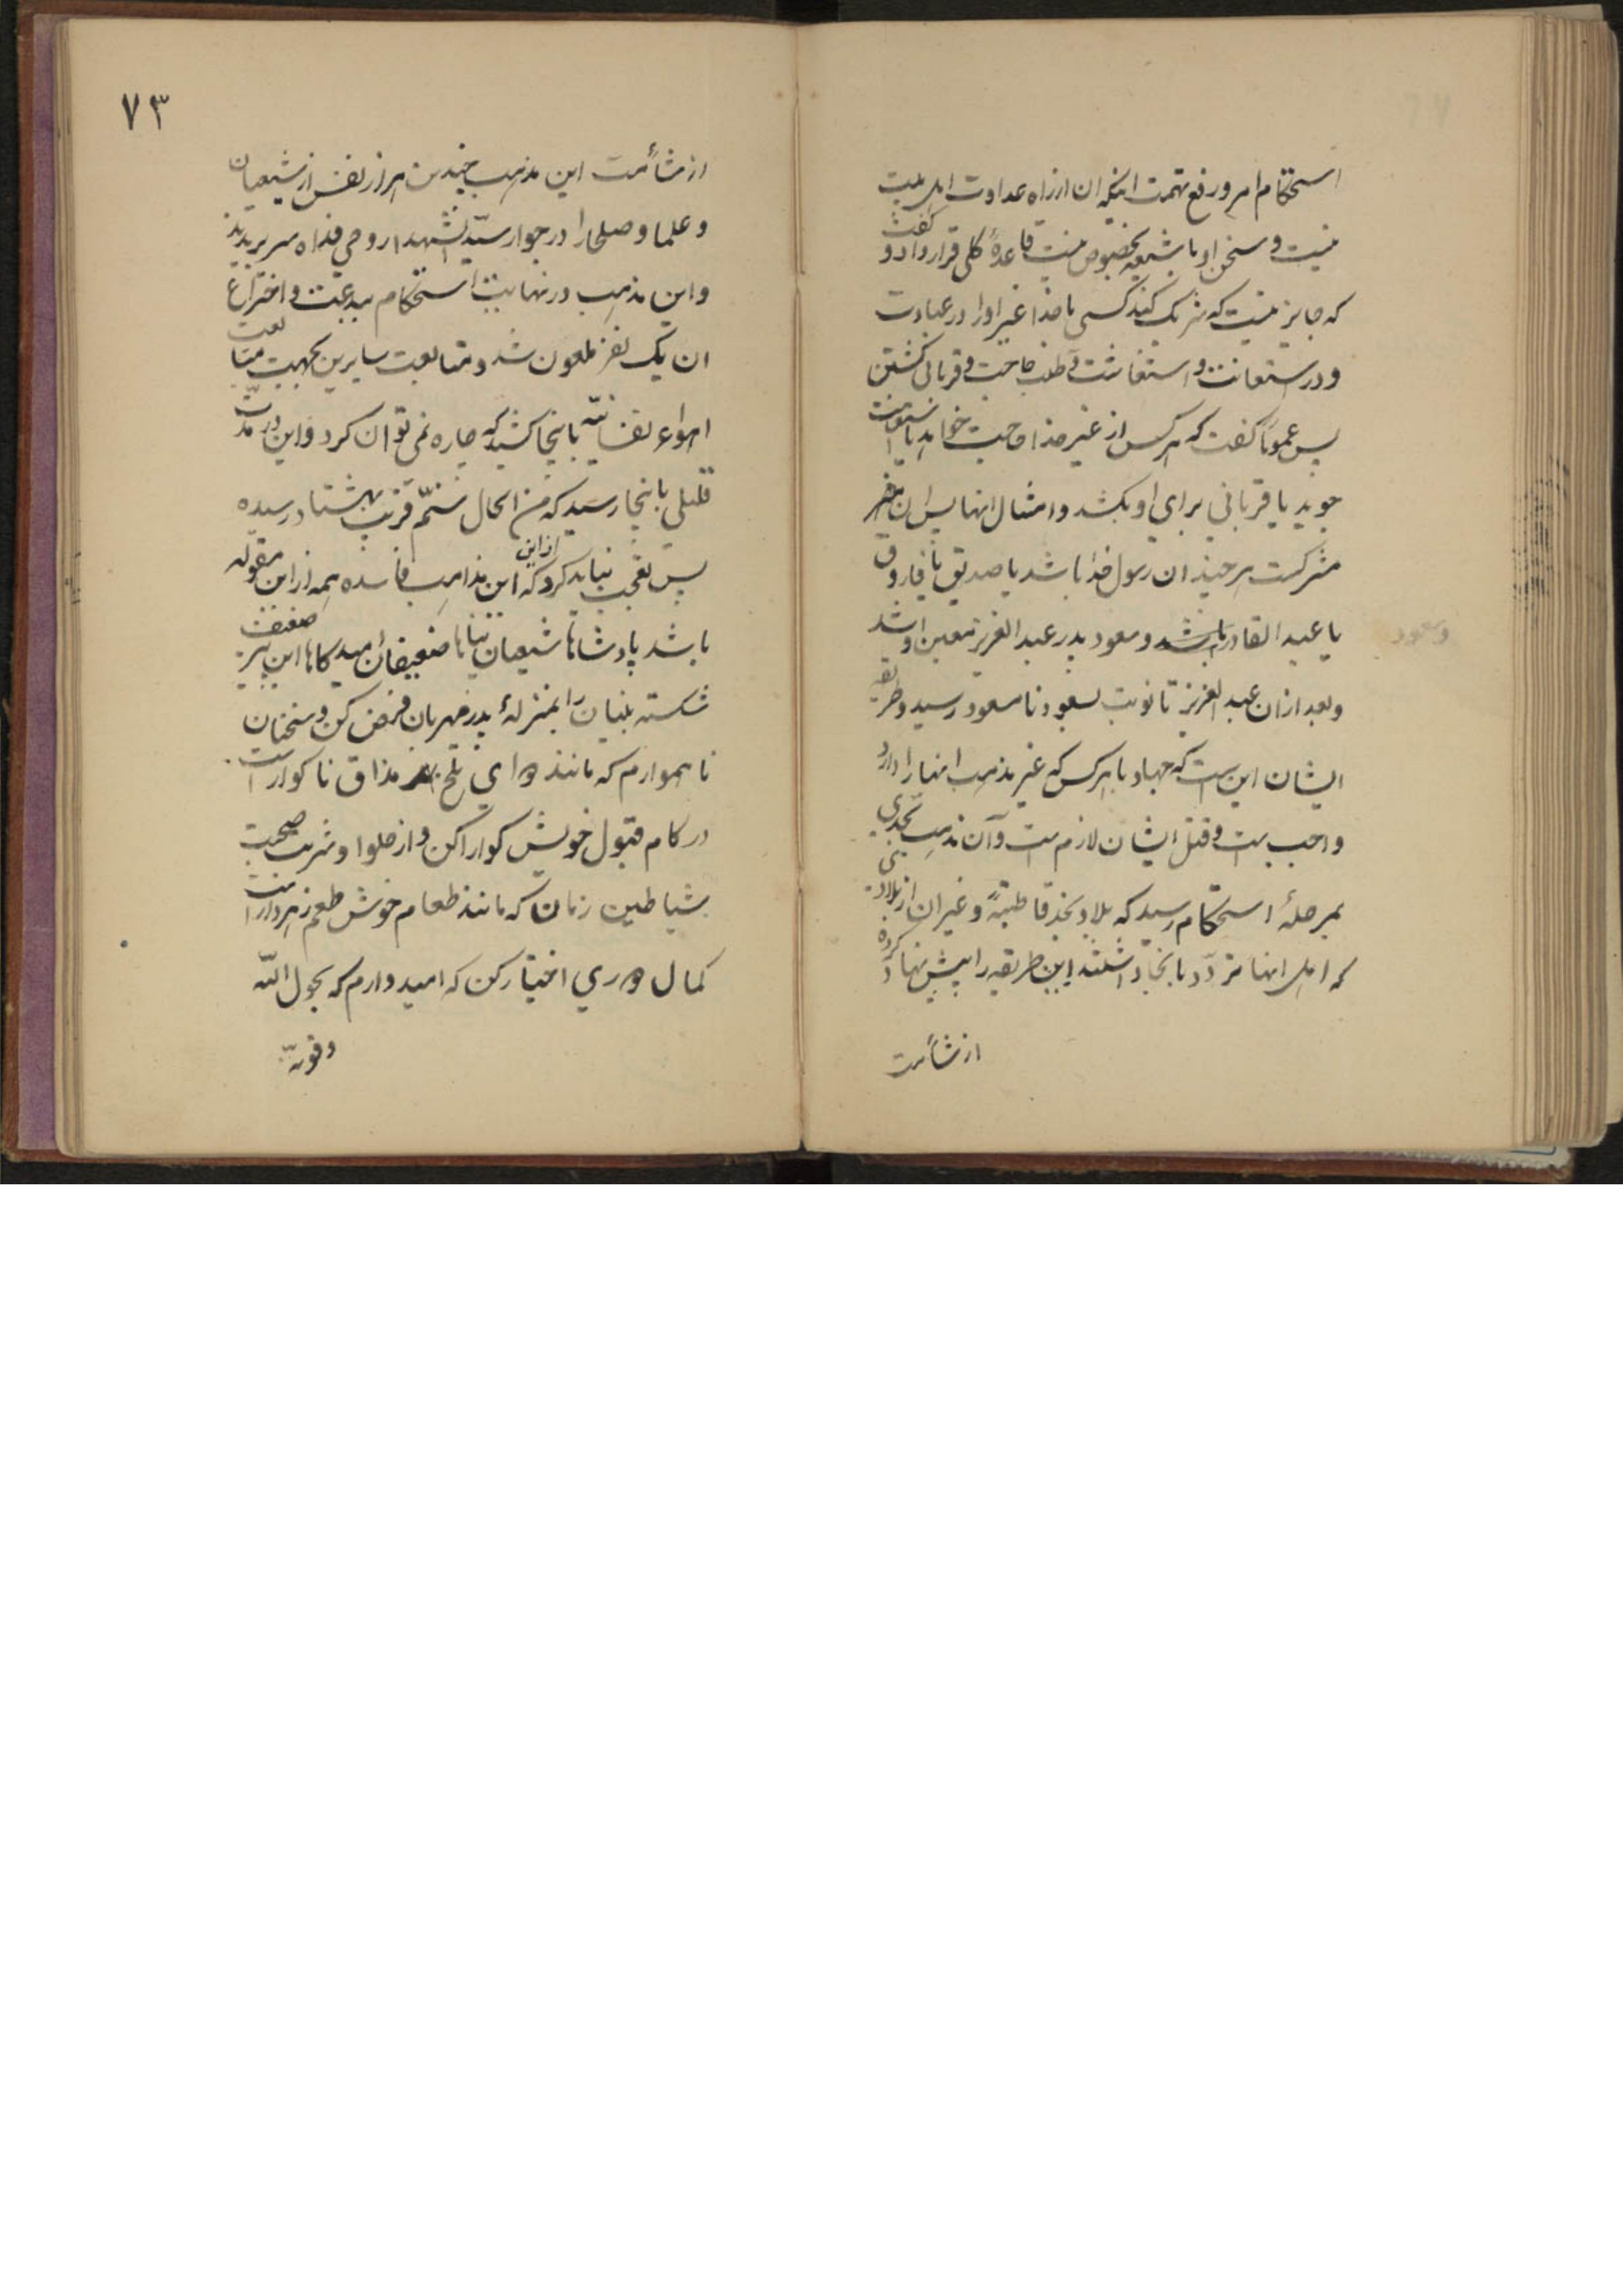 استحکام امر و رفع تهمت اینکه ان از راه عداوت اهل بیت
نیست و سخن او با شیعه بخصوص نیست قاعدهٔ کلی قرار داد و گفت
که جایز نیست که شریک کند کسی با خدا غیر او را در عبادت
و در استعانت و استغاثت و طلب حاجت و قربانی کشتن
پس عموماً گفت که هر کس از غیر خدا حاجت خواهد یا استعانت
جوید یا قربانی برای او بکشد و امثال انها پس ان
مشرکست هر چند ان رسول خدا باشد یا صدیق یا فاروق
یا عبد القادر باشد و سعود پدر عبد العزیز معین او شد
وسعود
و بعد از ان عبد العزیز تا نوبت بسعود نا مسعود رسید و طریقه
ایشان این است که جهاد با هر کس که غیر مذهب انها را دارد
واجب است و قتل ایشان لازم است و آن مذهب بحدی
بمرحلهٔ استحکام رسید که بلاد نجد قاطبةً و غیر ان از بلادی
که اهل انها تردّد بانجا داشتند این طریقه را پیش نهاد کرده
از شأمت
۷۳
از شأمت این مذهب چندین هزار نفس از شیعیان
و علما و صلحا را در جوار سیّد الشهدا روحی فداه سر بریدند
و این مذهب در نهایت استحکام ببدعت و اختراع
ان یک نفر ملعون شد و متابعت سایرین بجهت متابعت
اهواء نفسانیّه باینجا کشید که چاره نمی توان کرد و این در مدّت
قلیلی باینجا رسید که من الحال سنّم قریب بهشتاد رسیده
پس تعجب نباید کرد که از این این مذاهب فاسده همه از این مقوله
باشد پادشاها شیعیان پناها ضعیفان امیدگاها این پیر ضعیف
شکسته بنیان را بمنزلهٔ پدر مهربان فرض کن و سخنان
ناهموارم که مانند دوای تلخ مذاق ناکوار است
در کام قبول خویش کوارا کن و از حلوا و شربت صحبت
شیاطین زمان که مانند طعام خوش طعم زهردار است
کمال دوری اختیار کن که امیدوارم که بحول اللّه
وقوته